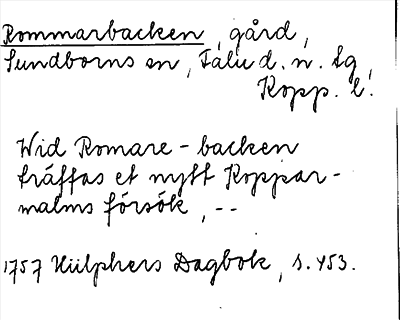 Rommarbacken, gård,
Sundborns sn, Falu d. n. tg,
Kopp. l.
Wid Romare-backen
träffas et nytt Koppar-
malms försök, --
1757 Hülphers Dagbok, s. 453.